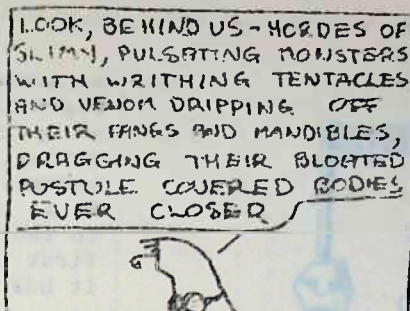 LOOK, BEHIND US - HORDES OF
SLIMY, PULSATING MONSTERS
WITH WRITHING TENTACLES
AND VENOM DRIPPING OFF
THEIR FANGS AND MANDIBLES,
DRAGGING THEIR BLOATED
PUSTULE COVERED BODIES
EVER CLOSER